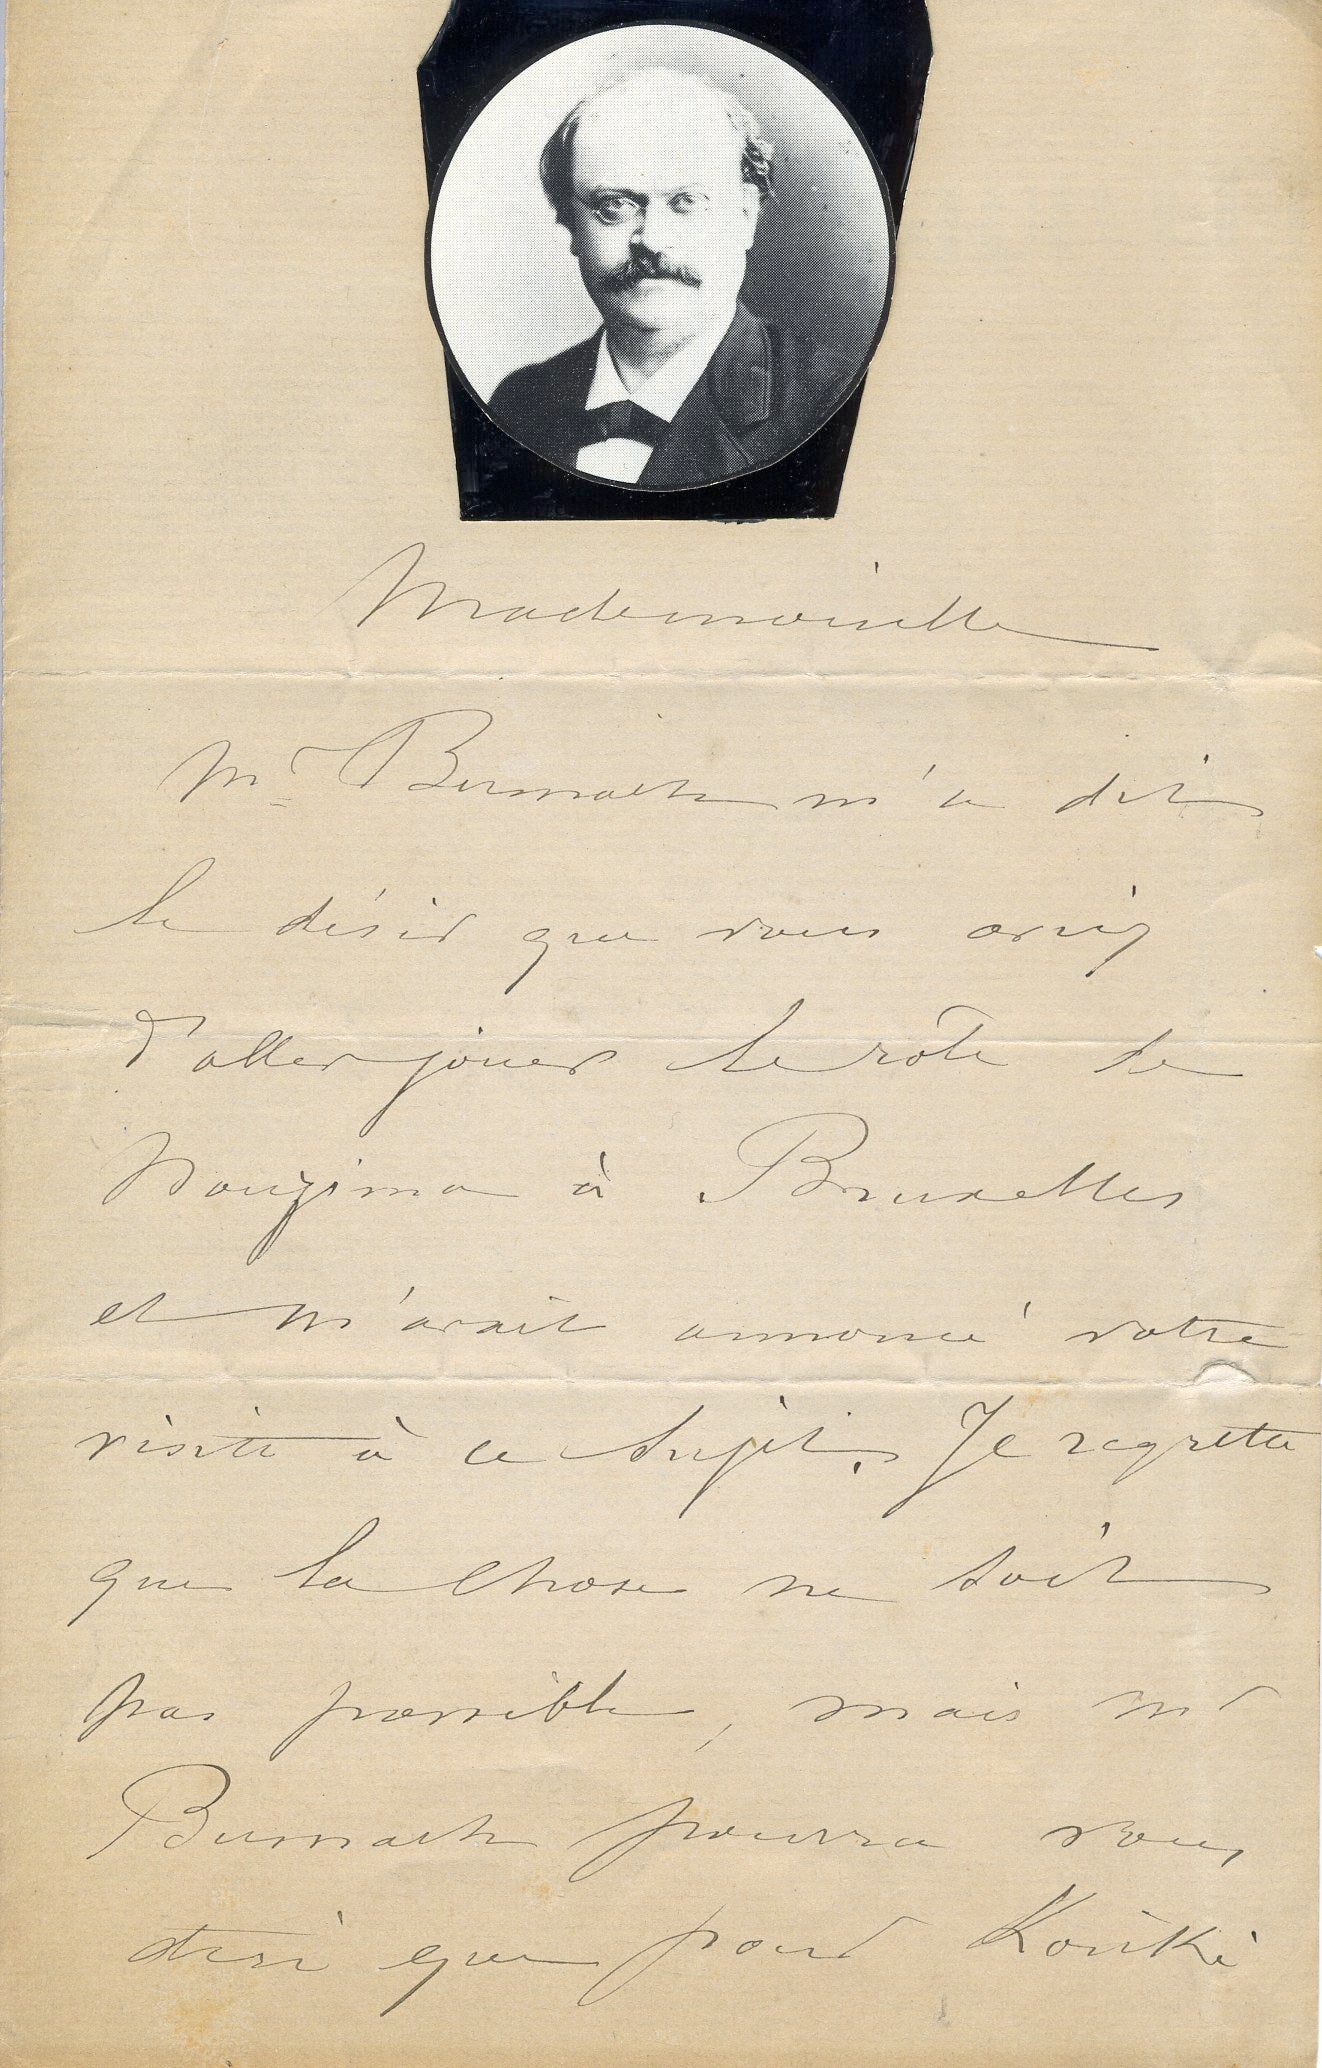 Mademoiselle
Mr Busnach m'a dit
le désir que vous aviez
d'aller jouer le rôle de
Nouzima à Bruxelles
et m'avait annoncé votre
visite à ce sujet. Je regrette
que la chose ne soit
pas possible, mais Mr
Busnach pourra vous
dire que pour Kosiki